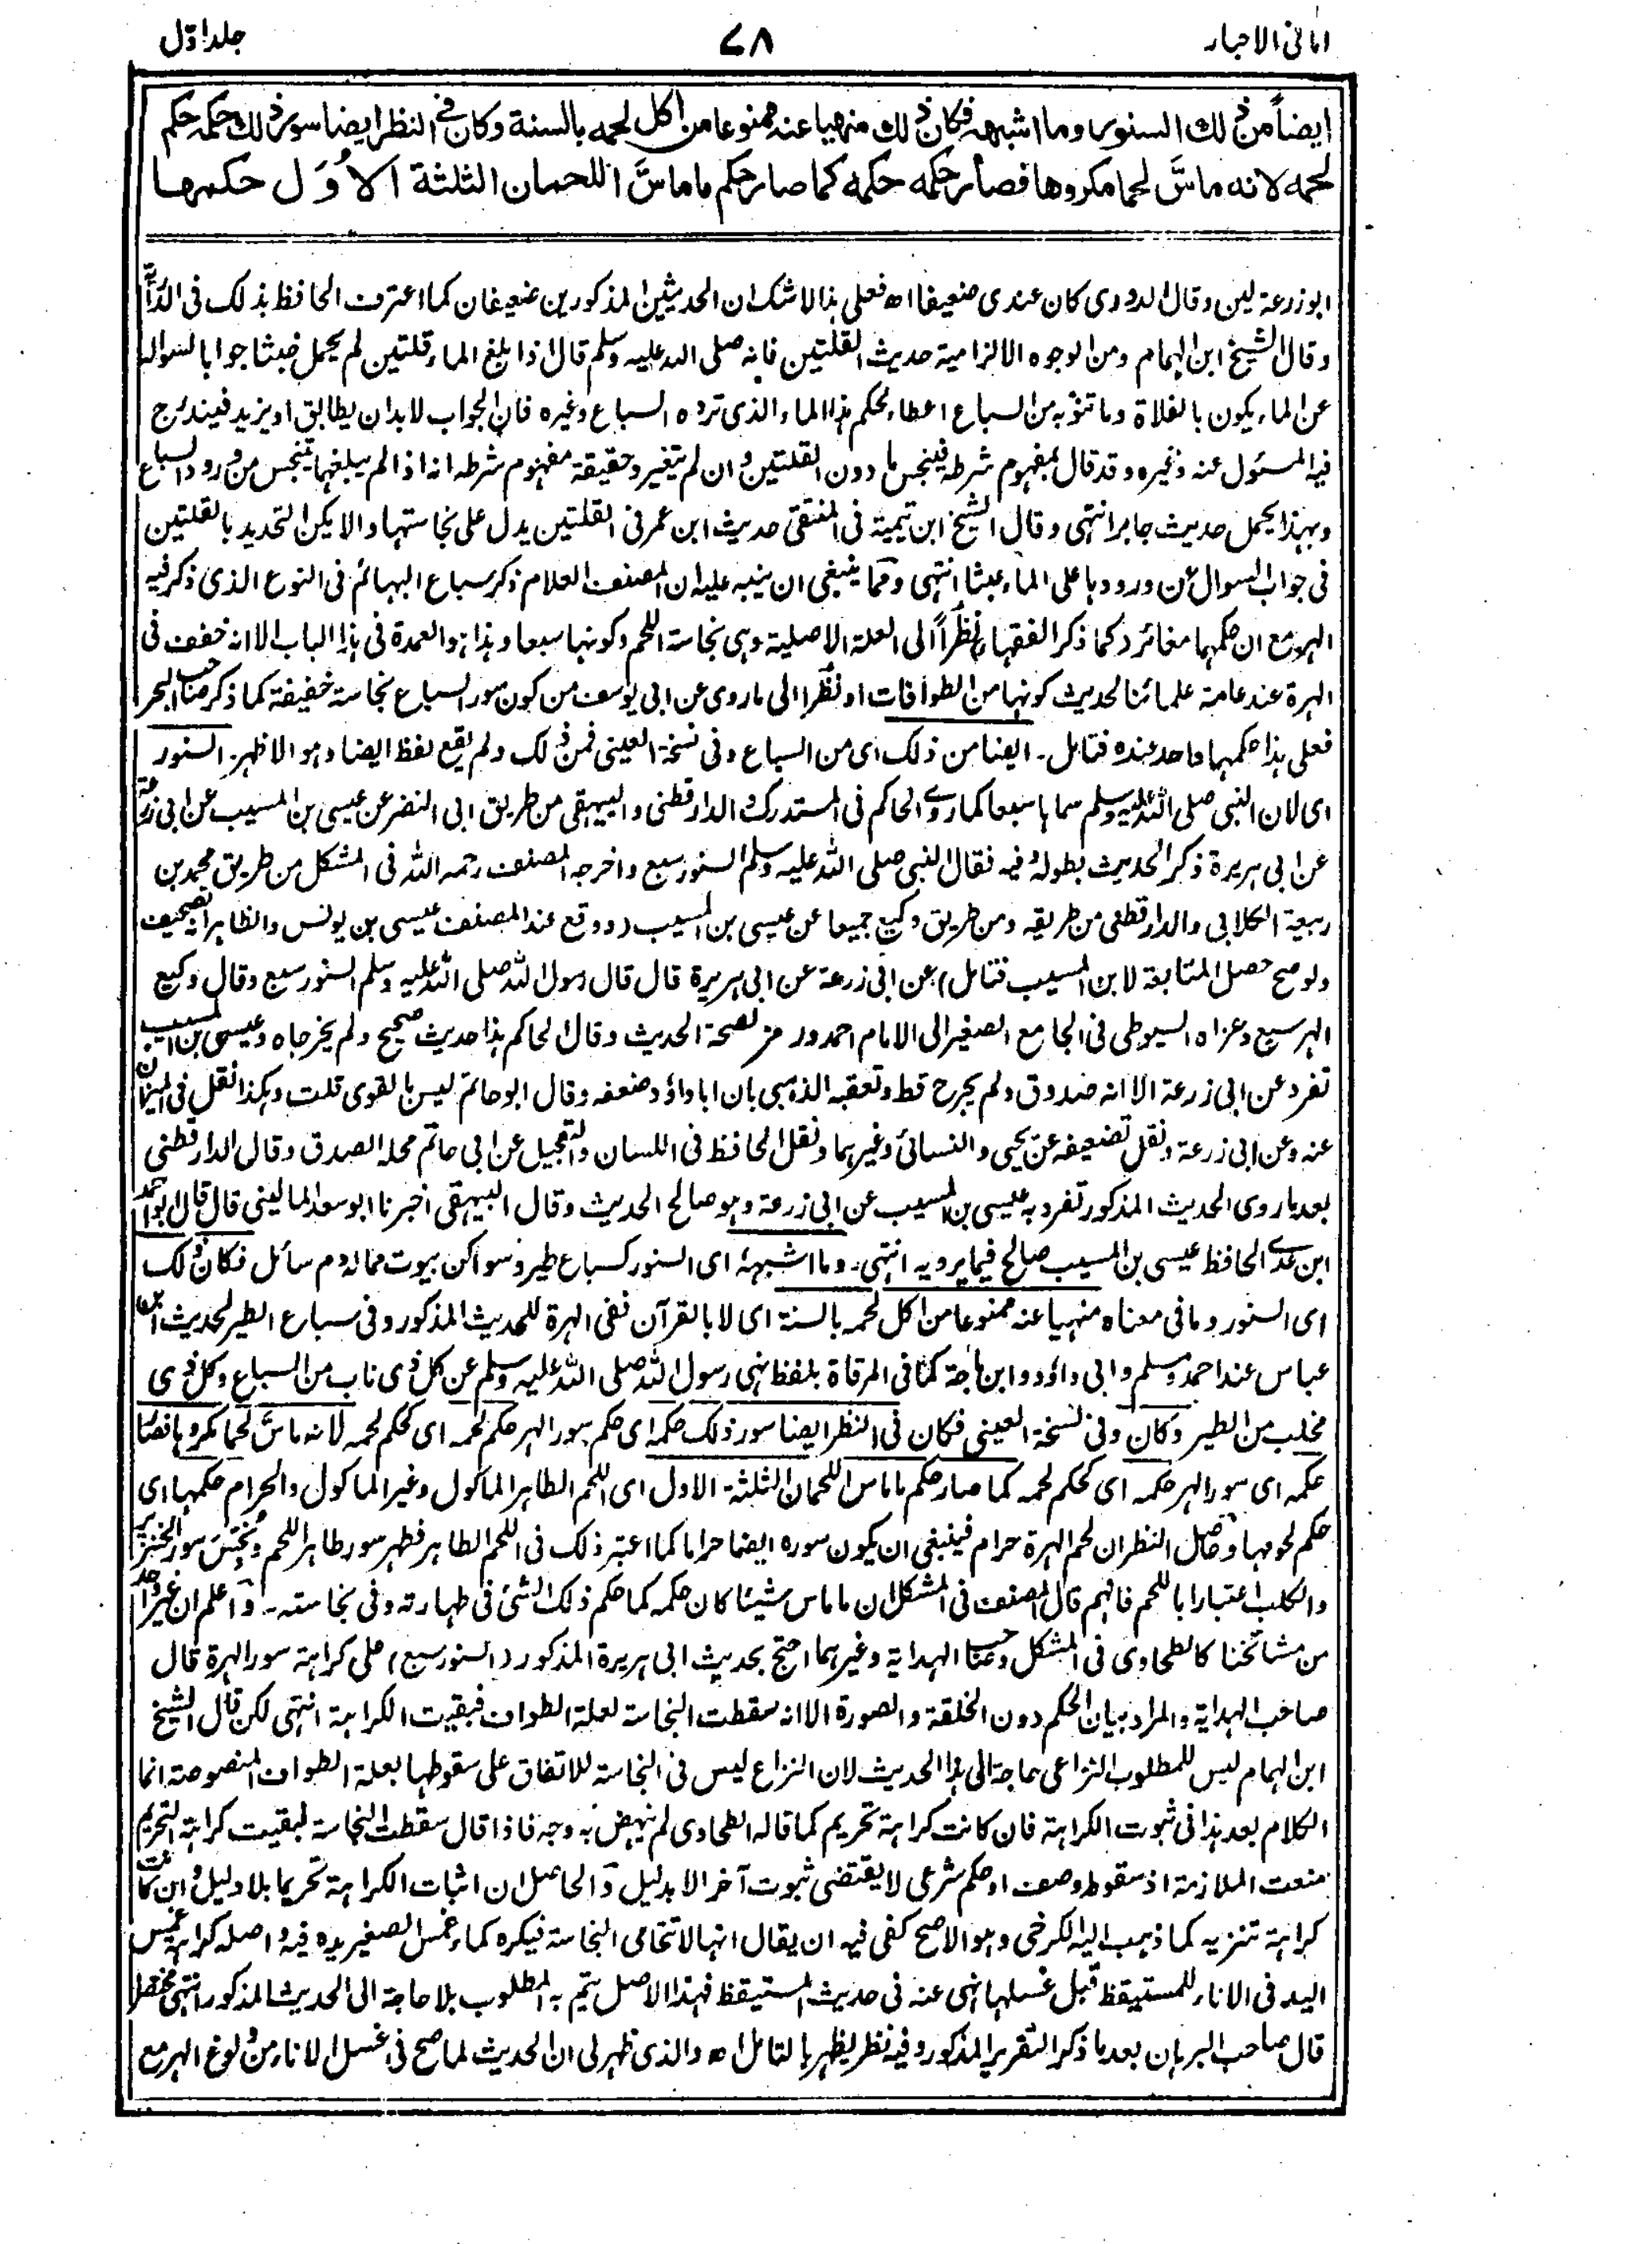 امانی الاحبار ۷۸ جلد اوّل
ایضاً من ذلك السنور وما اشبهه فكان ذلك منهيا عنه ممنوعا من اكل لحمه بالسنة وكان فی النظر ايضا سور ذلك حكمه حكم
لحمه لانه ماسَّ لحما مكروها فصار حكمه حكمه كما صار حكم ما ماسَّ اللحمان الثلثة الاُوَل حكمها
ابو زرعة لین وقال الدوری کان عندی ضعیفا اھ فعلی ہذا لا شک ان الحدیثین المذکورین ضعیفان کما اعترف الحافظ بذلک فی الدرایة
وقال الشیخ ابن الہمام ومن الوجوہ الالزامیة حدیث القلتین فانہ صلی اللہ علیہ وسلم قال اذا بلغ الماء قلتین لم یحمل خبثا جوابا لسوالہ
عن الماء یکون بالفلاة وما تنوبہ من السباع اعطاء لحکم ہذا الماء الذی تردہ السباع وغیرہ فان الجواب لا بد ان یطابق او یزید فیندرج
فیہ المسئول عنہ وغیرہ وقد قال بمفہوم شرطہ فینجس ما دون القلتین وان لم یتغیر وحقیقة مفہوم شرطہ انہ اذا لم یبلغہا یتنجس من ورود السباع
وبہذا یحمل حدیث جابر انتہی وقال الشیخ ابن تیمیة فی المنتقی حدیث ابن عمر فی القلتین یدل علی نجاستہا والا یکن التحدید بالقلتین
فی جواب السوال عن ورودہا علی الماء عبثا انتہی ومما ینبغی ان ینبہ علیہ ان المصنف العلام ذکر سباع البہائم فی النوع الذی ذکر فیہ
الہر مع ان حکمہا مغائر کما ذکر الفقہاء نظراً الی العلة الاصلیة وہی نجاسة اللحم وکونہا سبعا وہذا ہو العمدة فی ہذا الباب الا انہ خفف فی
الہرة عند عامة علمائنا لحدیث کونہا من الطوافات او نظرا الی ما روی عن ابی یوسف من کون سور السباع نجاسة خفیفة کما ذکر صاحب البحر
فعلی ہذا حکمہا واحد عندہ فتامل ۔ ایضا من ذلک ای من السباع وفی نسخة العینی فمن ذلک ولم یقع لفظ ایضا وہو الاظہر السنور
ای لان النبی صلی اللہ علیہ وسلم سماہا سبعا کما روی الحاکم فی المستدرک والدارقطنی والبیہقی من طریق ابی النضر عن عیسی بن المسیب عن ابی زرعة
عن ابی ہریرة ذکر الحدیث بطولہ وفیہ فقال النبی صلی اللہ علیہ وسلم السنور سبع واخرجہ المصنف رحمہ اللہ فی المشکل من طریق محمد بن
ربیعة الکلابی والدارقطنی من طریقہ ومن طریق وکیع جمیعا عن عیسی بن المسیب (ووقع عند المصنف عیسی بن یونس والظاہر انہ تصحیف
ولو صح حصل المتابعة لابن المسیب فتامل) عن ابی زرعة عن ابی ہریرة قال قال رسول اللہ صلی اللہ علیہ وسلم السنور سبع وقال وکیع
الہر سبع وعزاہ السیوطی فی الجامع الصغیر الی الامام احمد ورمز لصحة الحدیث وقال الحاکم ہذا حدیث صحیح ولم یخرجاہ وعیسی بن المسیب
تفرد عن ابی زرعة الا انہ صدوق ولم یجرح قط وتعقبہ الذہبی بان ابا داؤد ضعفہ وقال ابو حاتم لیس بالقوی قلت وہکذا نقل فی المیزان
عنہ وعن ابی زرعة ونقل تضعیفہ عن یحیی والنسائی وغیرہما ونقل الحافظ فی اللسان والتعجیل عن ابی حاتم محلہ الصدق وقال الدارقطنی
بعد ما روی الحدیث المذکور تفرد بہ عیسی بن المسیب عن ابی زرعة وہو صالح الحدیث وقال البیہقی اخبرنا ابو سعد المالینی قال قال ابو احمد
ابن عدی الحافظ عیسی بن المسیب صالح فیما یرویہ انتہی ۔ وما اشبہہ ای السنور کسباع طیر وسواکن بیوت مما لہ دم سائل فکان ذلک
ای السنور وما فی معناہ منہیا عنہ ممنوعا من اکل لحمہ بالسنة ای لا بالقرآن ففی الہرة للحدیث المذکور وفی سباع الطیر لحدیث ابن
عباس عند احمد ومسلم وابی داؤد وابن ماجة کما فی المرقاة بلفظ نہی رسول اللہ صلی اللہ علیہ وسلم عن کل ذی ناب من السباع وکل ذی
مخلب من الطیر وکان وفی نسخة العینی فکان فی النظر ایضا سور ذلک حکمہ ای حکم سور الہر حکم لحمہ ای کحکم لحمہ لانہ ماس لحما مکروہا فصار
حکمہ ای سور الہر حکمہ ای کحکم لحمہ کما صار حکم ما ماس اللحمان الثلثة الاول ای اللحم الطاہر الماکول وغیر الماکول والحرام حکمہا ای
حکم لحومہا وحاصل النظر ان لحم الہرة حرام فینبغی ان یکون سورہ ایضا حراما کما اعتبر ذلک فی اللحم الطاہر فطہر سور طاہر اللحم ونجس سور الخنزیر
والکلب اعتبارا باللحم فافہم قال المصنف فی المشکل ان ما ماس شیئا کان حکمہ کما حکم ذلک الشئ فی طہارتہ وفی نجاستہ ۔ واعلم ان غیر واحد
من مشائخنا کالطحاوی فی المشکل وصاحب الہدایة وغیرہما احتج بحدیث ابی ہریرة المذکور (السنور سبع) علی کراہة سور الہرة قال
صاحب الہدایة والمراد بیان الحکم دون الخلقة والصورة الا انہ سقطت النجاسة لعلة الطواف فبقیت الکراہة انتہی لکن قال الشیخ
ابن الہمام لیس للمطلوب النزاعی حاجة الی ہذا الحدیث لان النزاع لیس فی النجاسة للاتفاق علی سقوطہا بعلة الطواف المنصوصة انما
الکلام بعد ہذا فی ثبوت الکراہة فان کانت کراہة تحریم کما قالہ الطحاوی لم ینہض بہ وجہ فاذا قال سقطت النجاسة فبقیت کراہة التحریم
منعت الملازمة اذ سقوط وصف او حکم شرعی لا یقتضی ثبوت آخر الا بدلیل والحاصل ان اثبات الکراہة تحریما بلا دلیل وان کانت
کراہة تنزیہ کما ذہب الیہ الکرخی وہو الاصح کفی فیہ ان یقال انہا لا تتحامی النجاسة فیکرہ کماء غمس الصغیر یدہ فیہ واصلہ کراہة غمس
الید فی الاناء للمستیقظ قبل غسلہا نہی عنہ فی حدیث المستیقظ فہذا الاصل یتم بہ المطلوب بلا حاجة الی الحدیث المذکور انتہی مختصرا
قال صاحب البرہان بعد ما ذکر التقریر المذکور وفیہ نظر یظہر بالتامل اھ والذی ظہر لی ان الحدیث لما صح فی غسل الاناء من ولوغ الہر مع